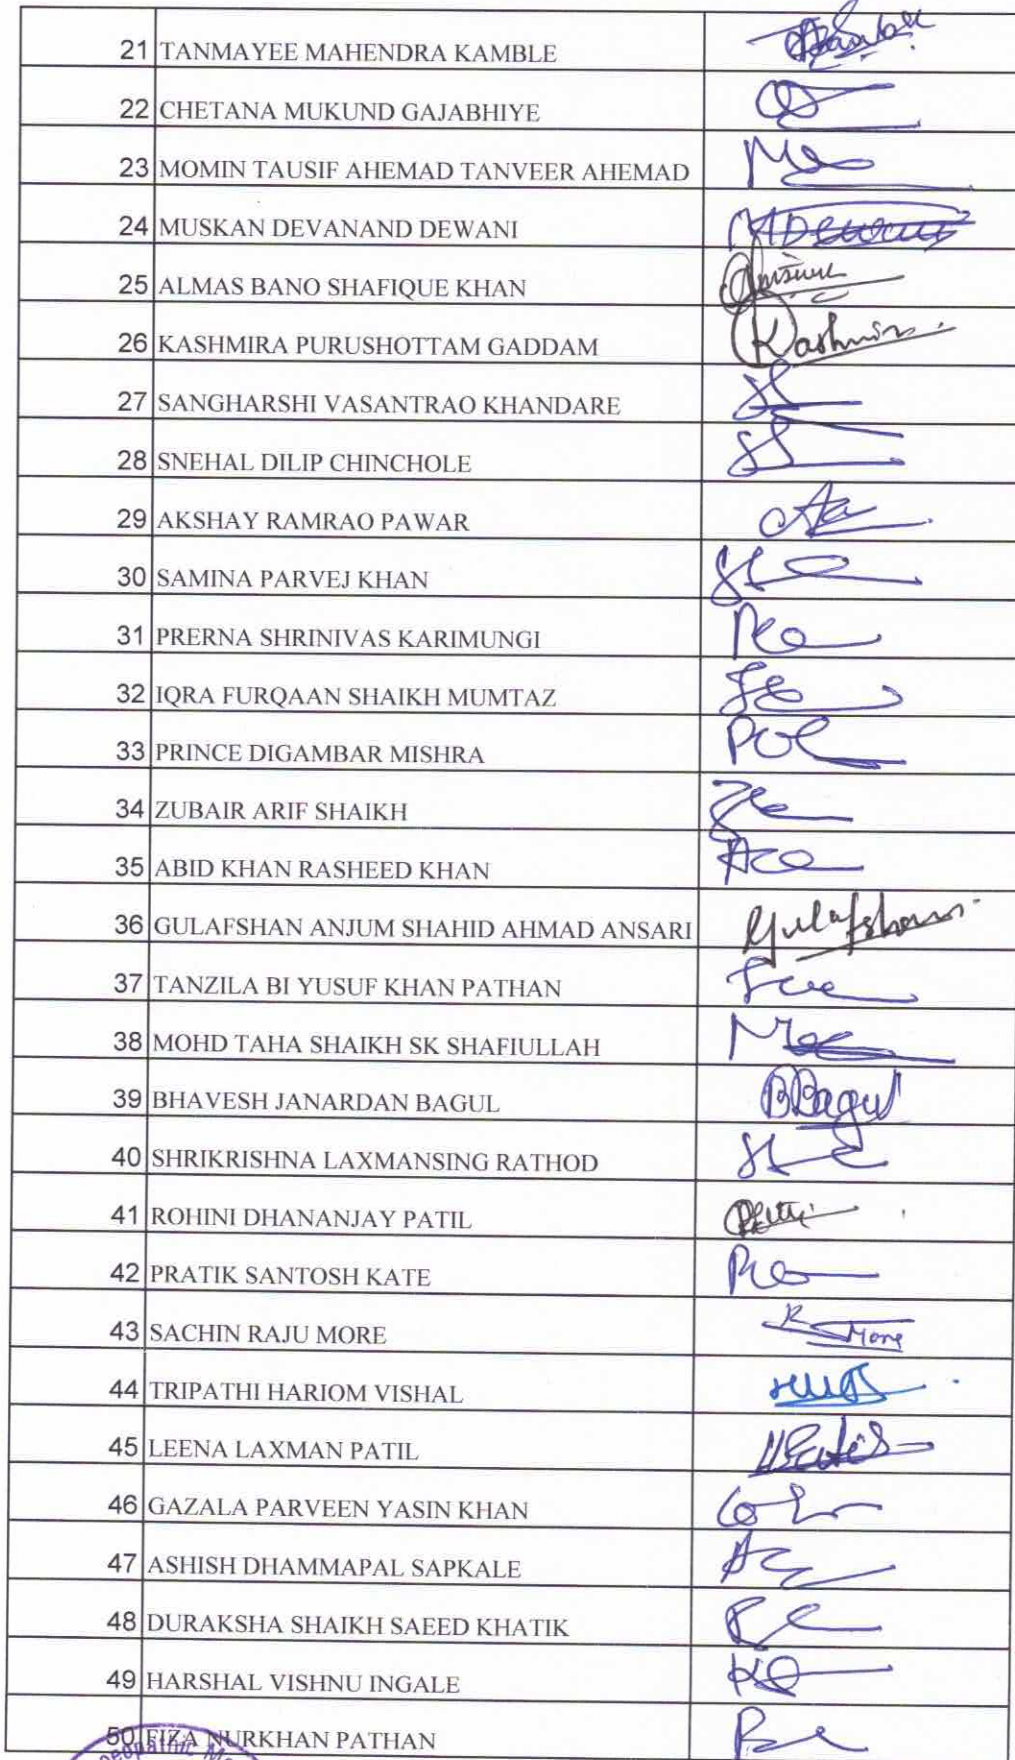 21 TANMAYEE MAHENDRA KAMBLE
22 CHETANA MUKUND GAJABHIYE
23 MOMIN TAUSIF AHEMAD TANVEER AHEMAD
24 MUSKAN DEVANAND DEWANI MDewani
25 ALMAS BANO SHAFIQUE KHAN
26 KASHMIRA PURUSHOTTAM GADDAM Kashmira
27 SANGHARSHI VASANTRAO KHANDARE
28 SNEHAL DILIP CHINCHOLE
29 AKSHAY RAMRAO PAWAR
30 SAMINA PARVEJ KHAN
31 PRERNA SHRINIVAS KARIMUNGI
32 IQRA FURQAAN SHAIKH MUMTAZ
33 PRINCE DIGAMBAR MISHRA
34 ZUBAIR ARIF SHAIKH
35 ABID KHAN RASHEED KHAN
36 GULAFSHAN ANJUM SHAHID AHMAD ANSARI Gulafshan
37 TANZILA BI YUSUF KHAN PATHAN
38 MOHD TAHA SHAIKH SK SHAFIULLAH
39 BHAVESH JANARDAN BAGUL BBagul
40 SHRIKRISHNA LAXMANSING RATHOD
41 ROHINI DHANANJAY PATIL
42 PRATIK SANTOSH KATE
43 SACHIN RAJU MORE R More
44 TRIPATHI HARIOM VISHAL
45 LEENA LAXMAN PATIL
46 GAZALA PARVEEN YASIN KHAN
47 ASHISH DHAMMAPAL SAPKALE
48 DURAKSHA SHAIKH SAEED KHATIK
49 HARSHAL VISHNU INGALE
50 FIZA NURKHAN PATHAN